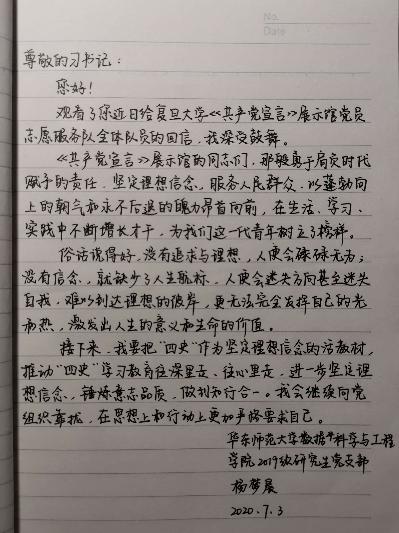 No.
Date
尊敬的习书记：
您好！
观看了您近日给复旦大学《共产党宣言》展示馆党员
志愿服务队全体队员的回信，我深受鼓舞。
《共产党宣言》展示馆的同志们，那敢勇于肩负时代
赋予的责任，坚定理想信念，服务人民群众，以蓬勃向
上的朝气和永不后退的魄力昂首向前，在生活、学习、
实践中不断增长才干，为我们这一代青年树立了榜样。
俗话说得好，没有追求与理想，人便会碌碌无为；
没有信念，就缺少了人生航标，人便会迷失方向甚至迷失
自我，难以到达理想的彼岸，更无法完全发挥自己的光
和热，激发出人生的意义和生命的价值。
接下来，我要把“四史”作为坚定理想信念的活教材，
推动“四史”学习教育往深里走、往心里走，进一步坚定理
想信念，锤炼意志品质，做到知行合一。我会继续向党
组织靠拢，在思想上和行动上更加严格要求自己。
华东师范大学数据科学与工程
学院2019级研究生党支部
杨梦晨
2020.7.3